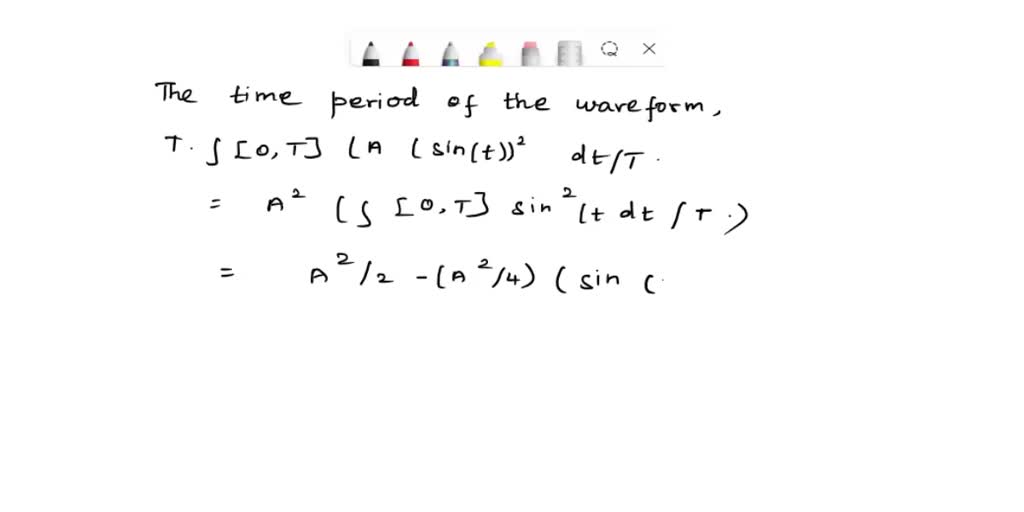 The time period of the waveform,
T. ∫ [0,T] (A (sin(t))² dt/T.
= A² (∫ [0,T] sin²(t dt /T.)
= A²/2 - (A²/4) ( sin (